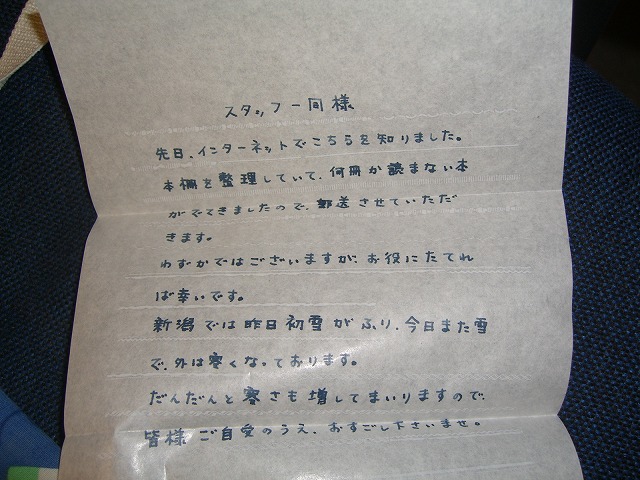 スタッフ一同様
先日、インターネットでこちらを知りました。
本棚を整理していて、何冊か読まない本
がでてきましたので、郵送させていただ
きます。
わずかではございますが、お役にたてれ
ば幸いです。
新潟では昨日初雪がふり、今日また雪
で、外は寒くなっております。
だんだんと寒さも増してまいりますので、
皆様ご自愛のうえ、おすごし下さいませ。